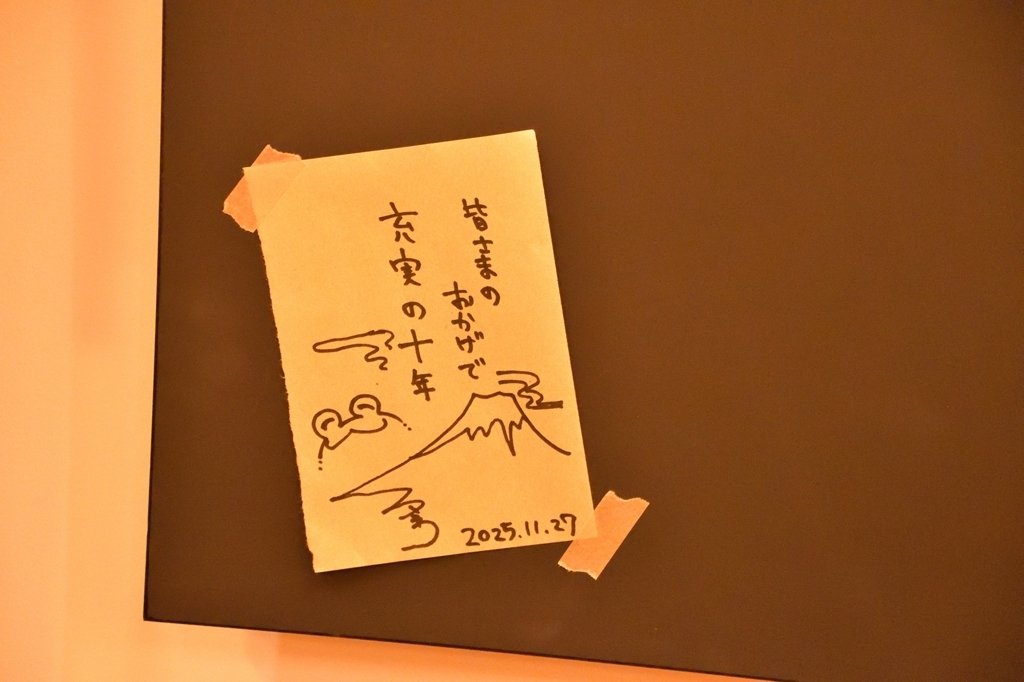 皆さまの
おかげで
充実の十年
2025.11.27